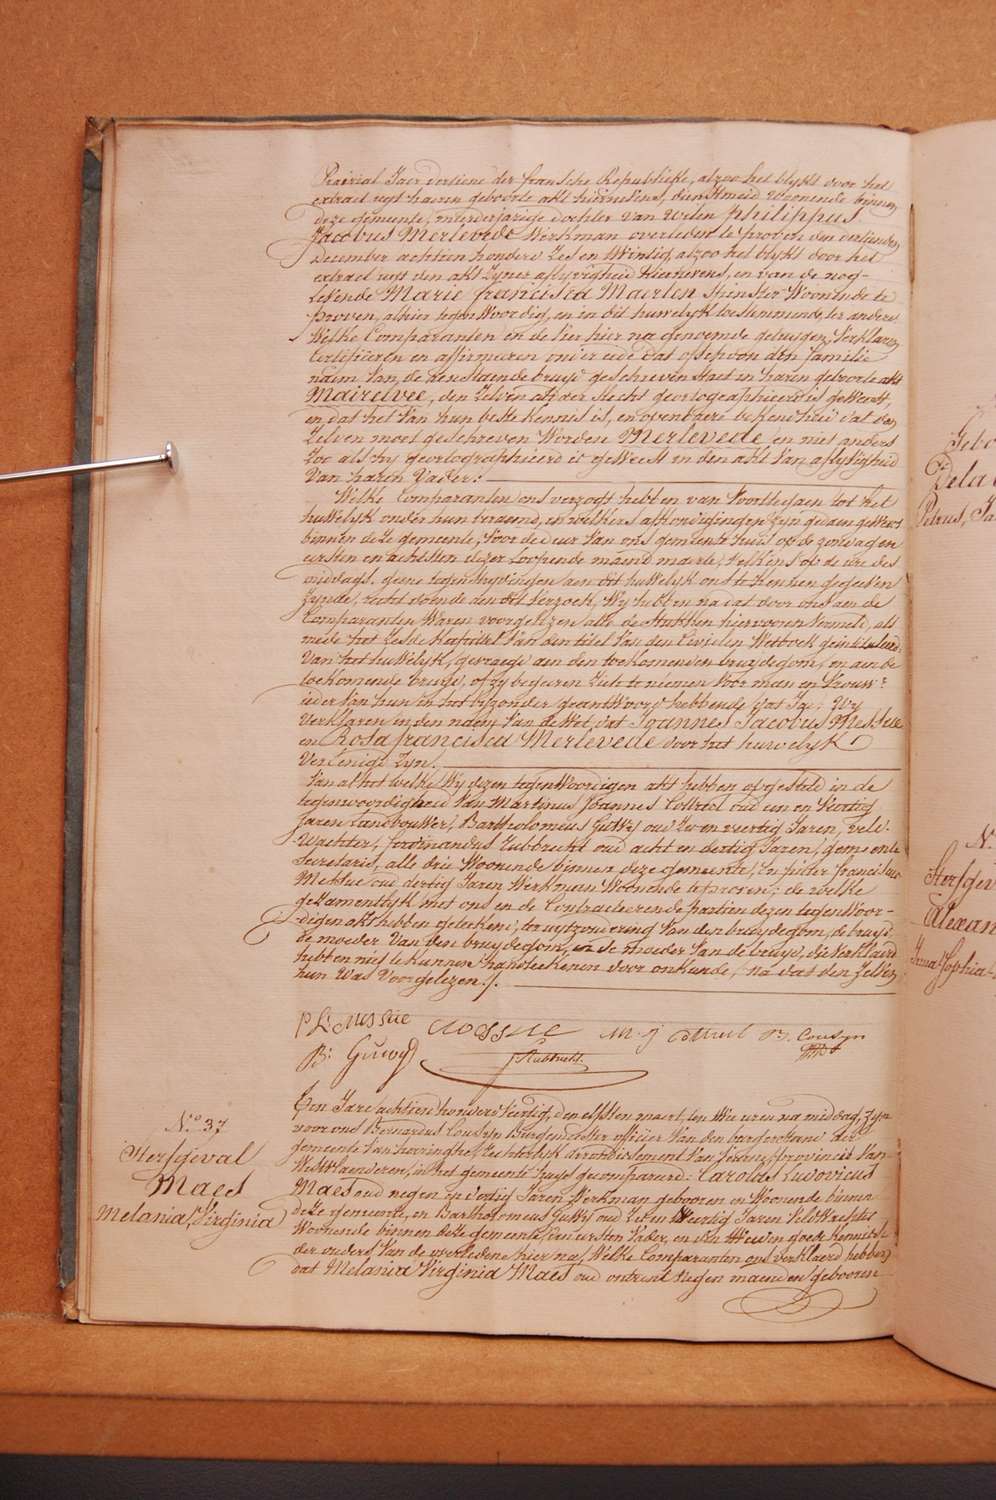 Prairial Jaer dertiene der fransche Republieke, alzoo het blykt door het
extract uyt haeren geboorte akt hiernevens, dienstmeid Woonende binnen
deze gemeente, minderjarige dochter van Wylen Philippus
Jacobus Merlevede Werkman overleden te Proven den dertienden
December achttien honderd Zes en Wintig, alzoo het blykt door het
extract uyt den akt Zyner aflyvigheid Hiernevens, en van de nog-
Levende Marie francisca Maerten spinster Woonende te
Proven, alhier tegenwoordig, en in dit huwelyk toestemmende, ter andere
Welke Comparanten en de vier hier na genoemde getuygen, Verklaren
Certifiëeren en affirmeren onder eede dat offschoon den familie
naem Van de aenstaende bruyd geschreven staet in haren geboorte akt
Mairelvee, den Zelven aldaer slecht geortographieerd is geweest,
en dat het Van hun beste kennis is, en openbaere bekendheid dat den
Zelven moet geschreven Worden Merlevede en niet anders
Zoo als hy geortographieerd is geweest in den akt Van aflyvigheid
Van haren Vader:
Welke Comparanten ons verzogt hebben van Voorttegaen tot het
huwelyk onder hun beraemd, en welkers afkondigingen zyn gedaen geweest
binnen deze gemeente, Voor de deur Van ons gemeente huis op de zondagen
eersten en achtsten dezer loopende maend maerte, telkens op de ure des
middags. geene tegenstrevingen aen dit huwelyk ons te kennen gegeven
Zynde, recht doende aen dit Verzoek, Wy hebben na dat door ons aen de
Comparanten Waren voorgelezen alle de Stukken hiervooren Vermeld, als
mede het Zesde Kapittel Van den titel Van den Civielen Wetboek geintituleerd:
Van het huwelyk, gevraegd aen den toekomenden bruydegom, en aen de
toekomende bruyd, of zy begeeren Zich te neemen Voor man en Vrouw:
ieder Van hun in het byzonder geantwoord hebbende dat Ja; Wy
Verklaren in den naem Van de Wet, dat Joannes Jacobus Messue
en Rosa francisca Merlevede door het huwelyk
Vereenigd Zyn.
Van al het welke Wy dezen tegenwoordigen akt hebben opgesteld in de
tegenwoordigheid Van Martinus Joannes Cottreel oud een en Veertig
Jaren Landbouwer, Bartholomeus Guwy oud Zeven veertig Jaren, veld-
Wachter, ferdinandus Lubbrecht oud acht en dertig Jaren, gemeente
Secretaris, alle drie Woonende binnen deze gemeente, en pieter franciscus
Messue oud dertig Jaren Werkman Woonende te proven; de welke
gezamentlyk met ons en de Contracteerende partien dezen tegenwoor-
digen akt hebben geteekend, ter uytzondering Van den bruydegom, de bruyd
de moeder Van den bruydegom, en de moeder Van de bruyd, die verklaerd
hebben niet te kunnen handteekenen door onkunde, na dat den Zelven
hun was Voorgelezen./.
P L Messue Messue M. J Cottreel B. Cousyn
B: Guwy
N.° 37
Sterfgeval
Maes
Melania Virginia
Een Jare achttien honderd Veertig, den elfsten maert, ten Wee uren na middag, Zyn
voor ons Bernardus Cousyn Burgemeester officier Van den burgerstand der
gemeente Van haringhe, Rechterlyk arrondissement Van Veurne, provincie Van
Westvlaenderen, in het gemeente huys gecompareerd: Carolus Ludovicus
Maes oud negen en dertig Jaren Werkman gebooren en Woonende binnen
deze gemeente, en Bartholomeus Guwy oud Zeven Veertig Jaren Veldwachter
Woonende binnen deze gemeente, den eersten Vader, en den Weeden goede kennis
der ouders Van de overledene hier na, Welke Comparanten ons verklaerd hebben
dat Melania Virginia Maes oud ontrent negen maenden, gebooren